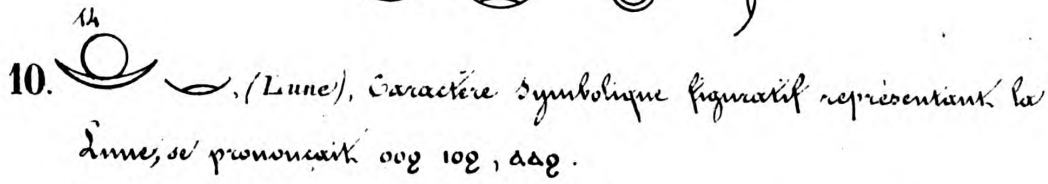 14
10. , (Lune), Caractère Symbolique figuratif représentant la
Lune, se prononçait ⲟⲟϩ ⲓⲟϩ, ⲁⲁϩ.